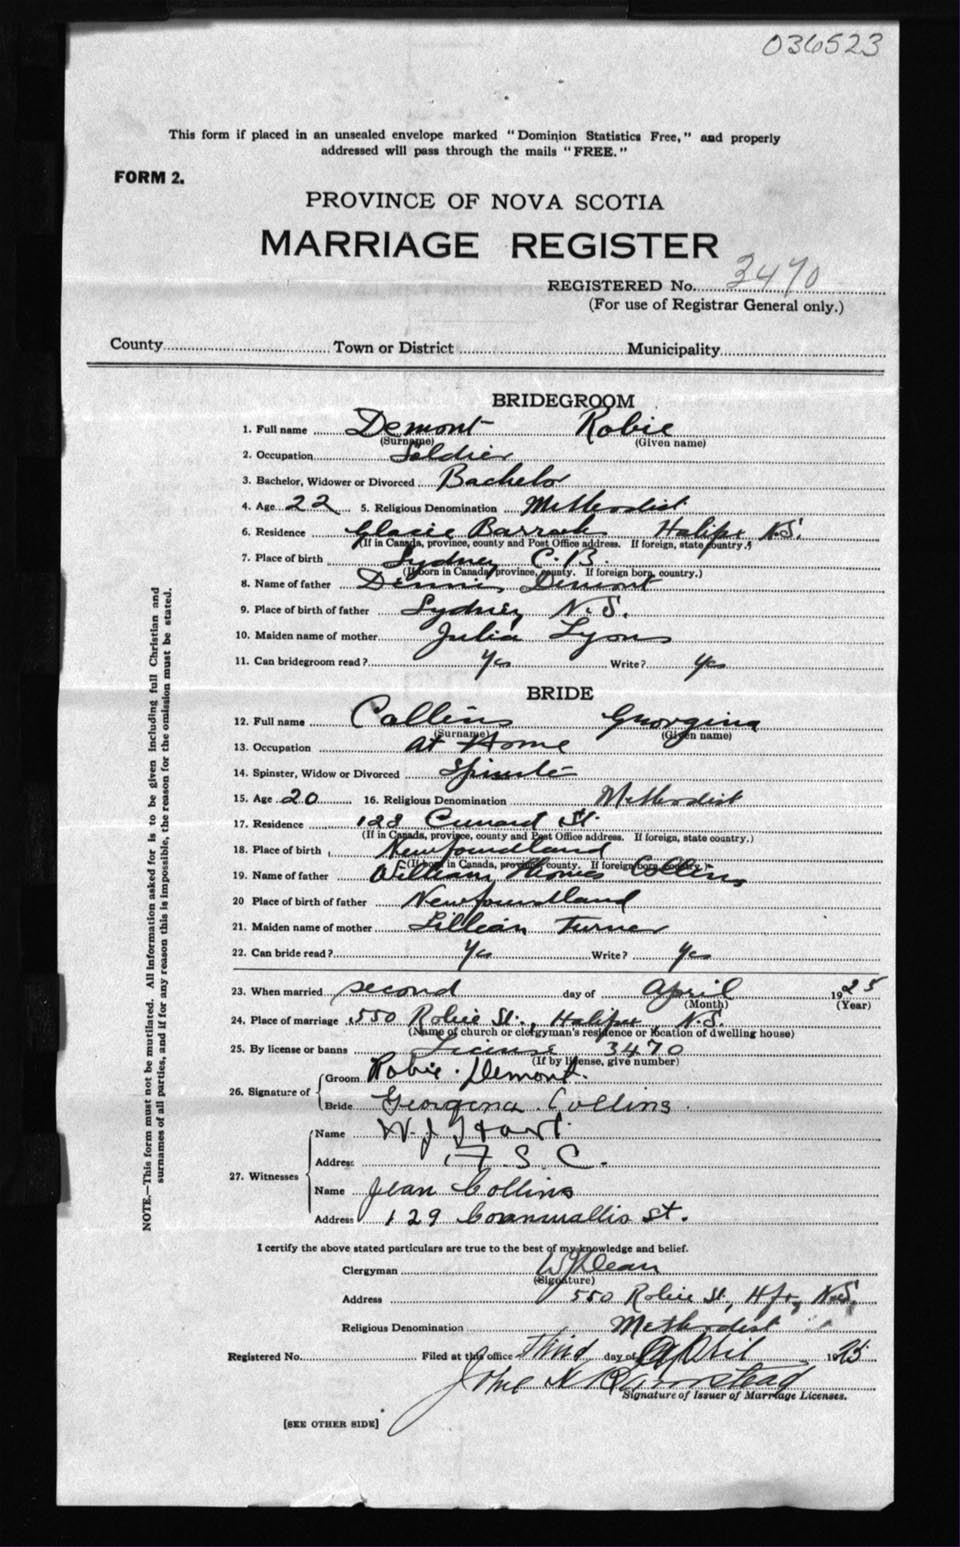 036523
This form if placed in an unsealed envelope marked "Dominion Statistics Free," and properly
addressed will pass through the mails "FREE."
FORM 2.
PROVINCE OF NOVA SCOTIA
MARRIAGE REGISTER
REGISTERED No. 3470
(For use of Registrar General only.)
County Town or District Municipality
BRIDEGROOM
1. Full name Demont Robie
(Surname) (Given name)
2. Occupation Soldier
3. Bachelor, Widower or Divorced Bachelor
4. Age 22 5. Religious Denomination Methodist
6. Residence Glacie Barrack Halifax N.S.
(If in Canada, province, county and Post Office address. If foreign, state country.)
7. Place of birth Sydney C.B.
(If born in Canada, province, county. If foreign born, country.)
8. Name of father Dennis Demont
9. Place of birth of father Sydney N.S.
10. Maiden name of mother Julia Lyons
11. Can bridegroom read? Yes Write? Yes
BRIDE
12. Full name Collins Georgina
(Surname) (Given name)
13. Occupation At Home
14. Spinster, Widow or Divorced Spinster
15. Age 20 16. Religious Denomination Methodist
17. Residence 128 Cunard St.
(If in Canada, province, county and Post Office address. If foreign, state country.)
18. Place of birth Newfoundland
(If born in Canada, province, county. If foreign born, country.)
19. Name of father William Thomas Collins
20 Place of birth of father Newfoundland
21. Maiden name of mother Lillian Turner
22. Can bride read? Yes Write? Yes
23. When married second day of April 1925
(Month) (Year)
24. Place of marriage 550 Robie St., Halifax N.S.
(Name of church or clergyman's residence or location of dwelling house)
25. By license or banns License 3470
(If by license, give number)
26. Signature of Groom Robie Demont.
Bride Georgena Collins.
27. Witnesses Name W. J. Hart.
Address F. S. C.
Name Jean Collins
Address 129 Cornwallis St.
I certify the above stated particulars are true to the best of my knowledge and belief.
Clergyman W J Dean
(Signature)
Address 550 Robie St., Hfx, N.S.
Religious Denomination Methodist
Registered No. Filed at this office Third day of April 1925
John H Barnstead
Signature of Issuer of Marriage Licenses.
[SEE OTHER SIDE]
NOTE.—This form must not be mutilated. All information asked for is to be given including full Christian and
surnames of all parties, and if for any reason this is impossible, the reason for the omission must be stated.